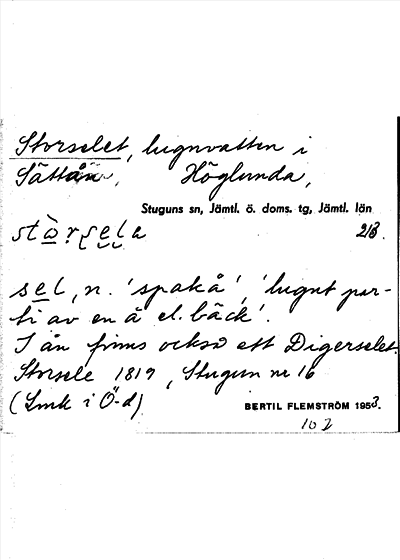 Storselet, lugnvatten i
Sättån, Höglunda,
Stuguns sn, Jämtl. ö. doms. tg, Jämtl. län
stòrsela 2/3.
sel, n. 'spakå', 'lugnt par-
ti av en å el. bäck'.
I ån finns också ett Digerselet.
Storsele 1819, Stugun nr 16
(Lmk i Ö-d)
BERTIL FLEMSTRÖM 1953.
102